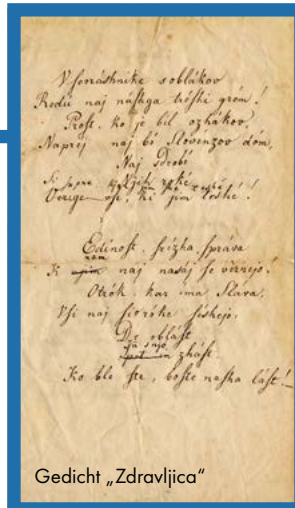 V sovráshnike s oblákov
Rodú naj náshga tréshi gróm!
Prost, ko je bil ozhákov,
Naprej naj bó Slovénzov dóm;
Naj sdrobé
roké
Verige vse, ki jim teshé!
Edinost, srézha, správa
K nam naj nasáj se vernejo;
Otrók, kar ima Sláva,
Vsi naj si v róke séshejo,
De oblást
zhást,
Ko ble ste, boste nasha lást!
Gedicht „Zdravljica“